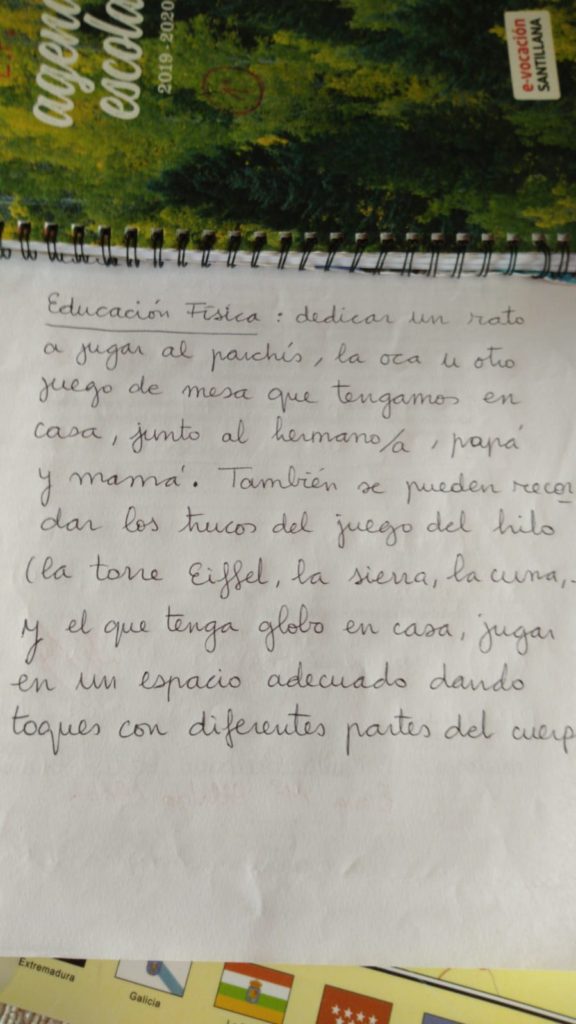 agen
escola
2019-2020
e-vocación
SANTILLANA
Educación Física : dedicar un rato
a jugar al parchís, la oca u otro
juego de mesa que tengamos en
casa, junto al hermano/a, papá
y mamá. También se pueden recor
dar los trucos del juego del hilo
(la torre Eiffel, la sierra, la cuna,..
y el que tenga globo en casa, jugar
en un espacio adecuado dando
toques con diferentes partes del cuerp
Extremadura
Galicia